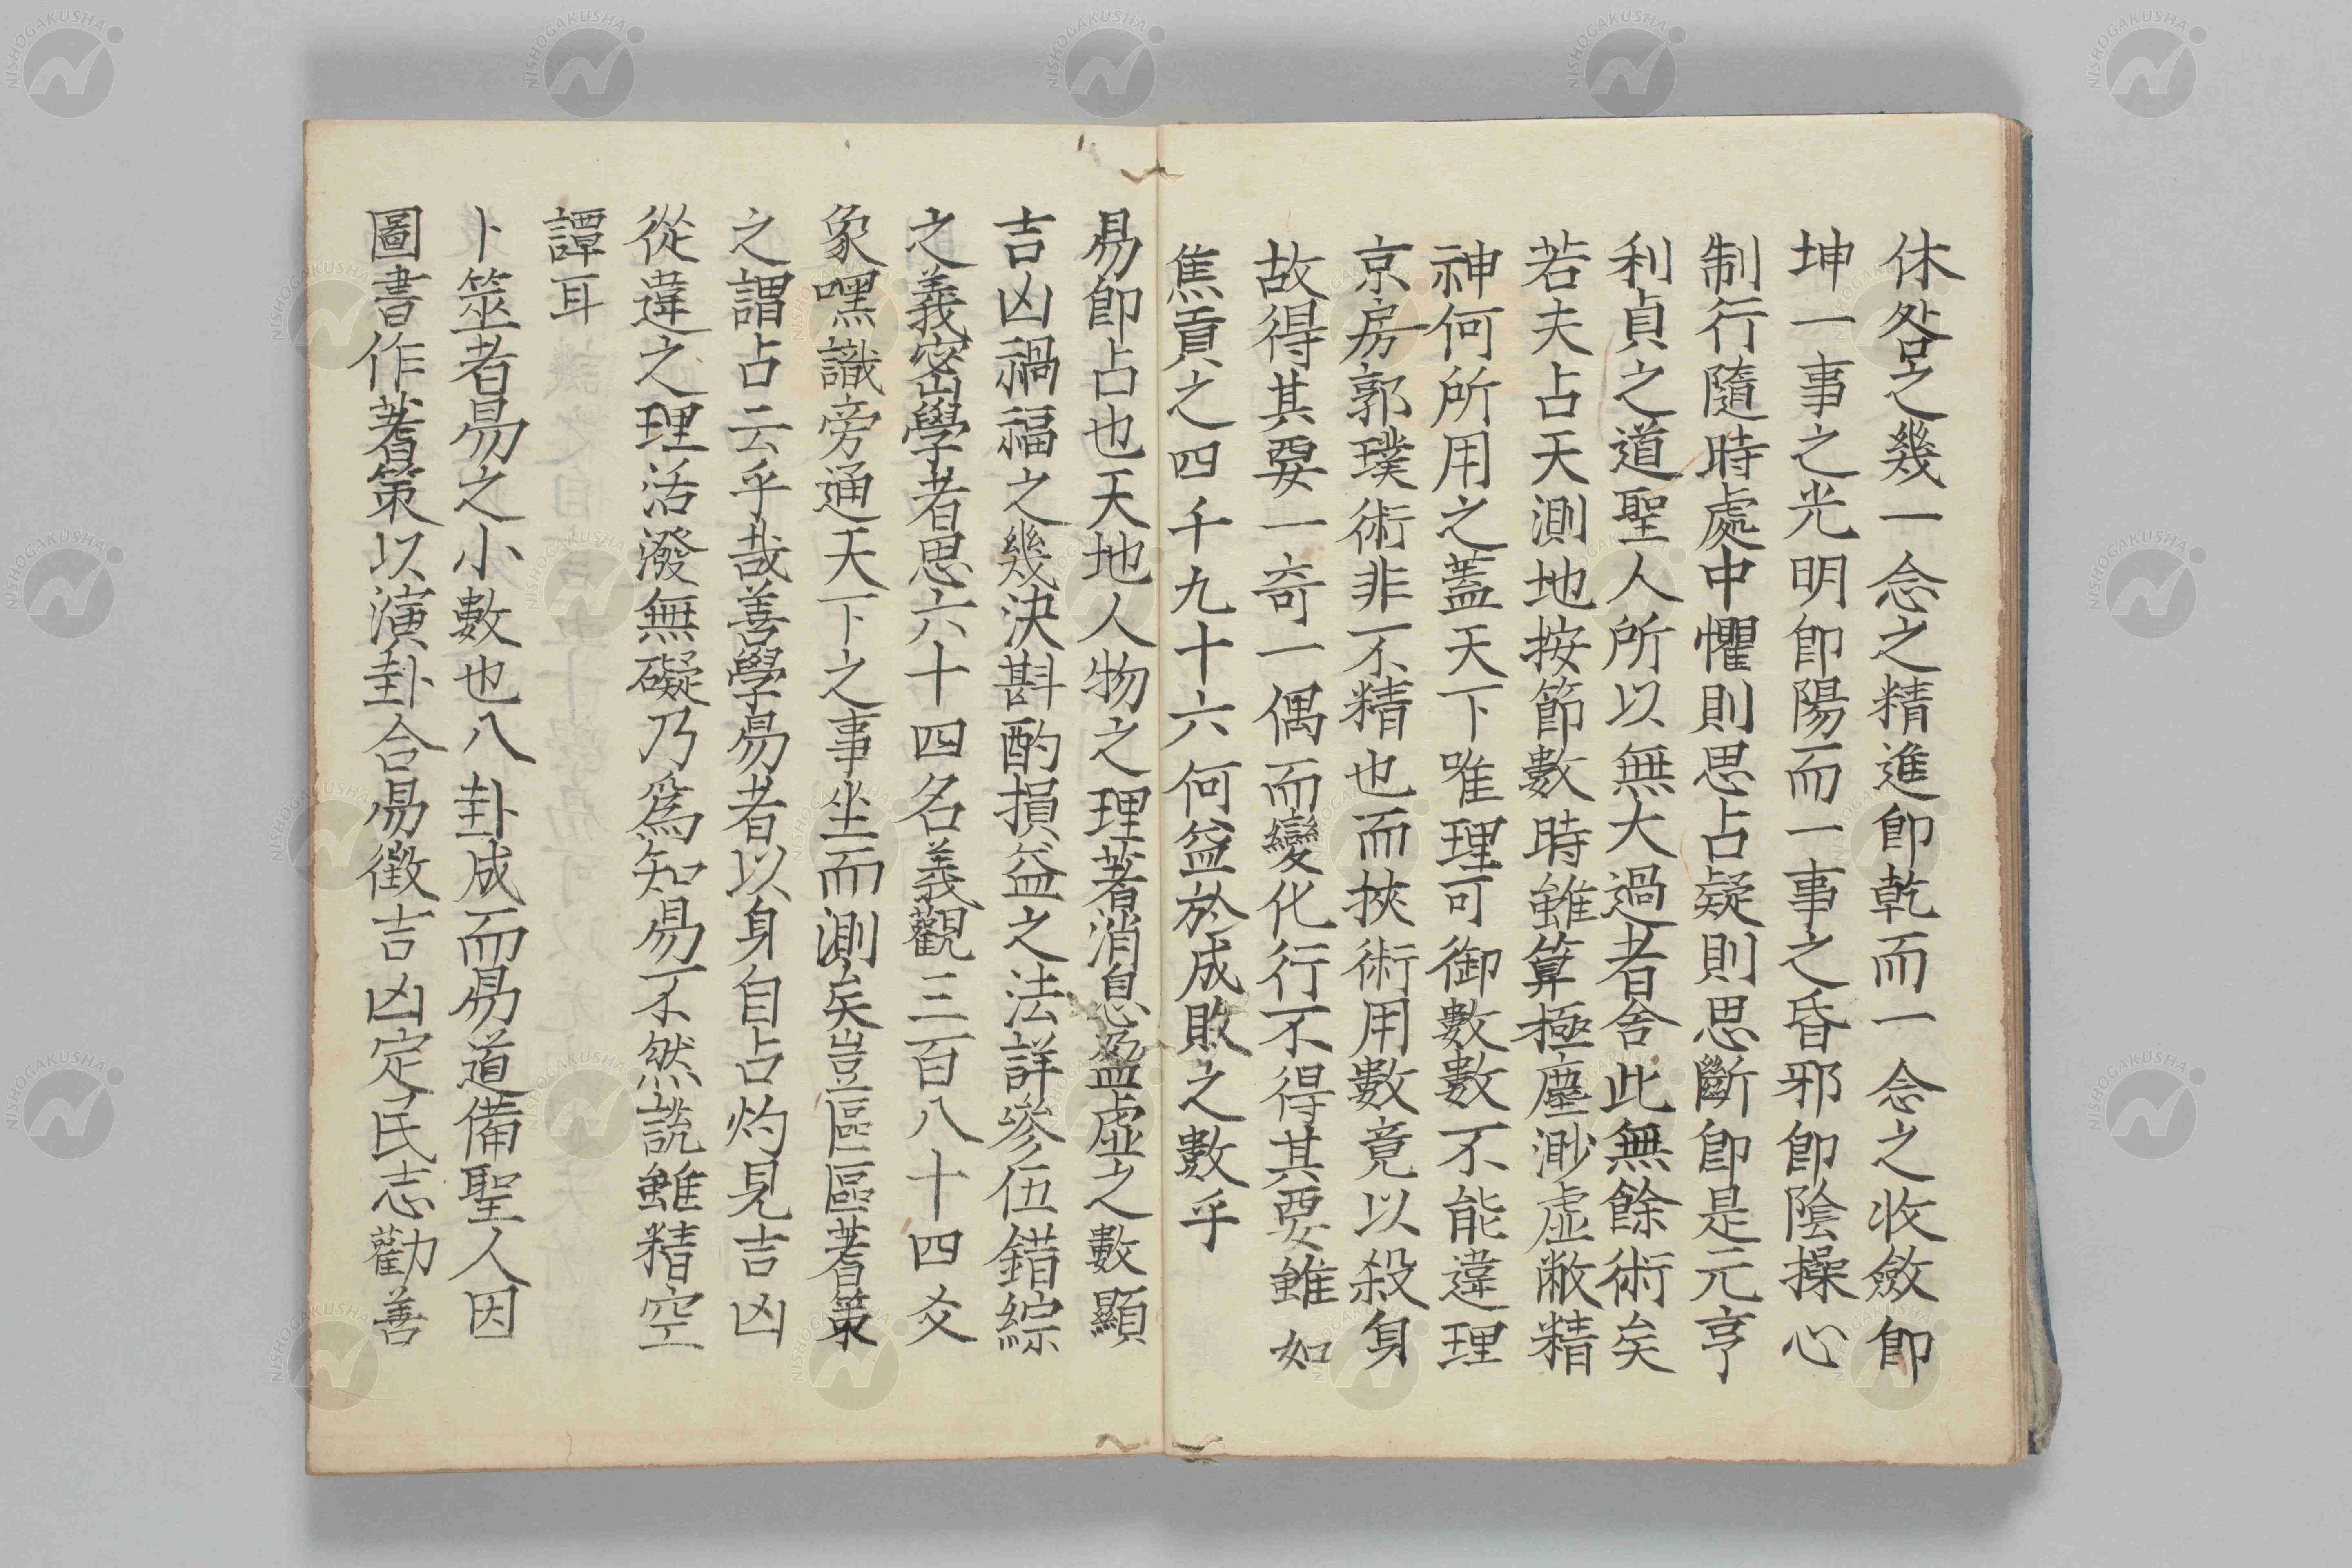 休咎之幾一念之精進卽乾而一念之收斂卽
坤一事之光明卽陽而一事之昏邪卽陰操心
制行隨時處中懼則思占疑則思斷卽是元亨
利貞之道聖人所以無大過者舍此無餘術矣
若夫占天測地按節數時雖算極塵渺虛敝精
神何所用之蓋天下唯理可御數數不能違理
京房郭璞術非不精也而挾術用數竟以殺身
故得其要一奇一偶而變化行不得其要雖如
焦貢之四千九十六何益於成敗之數乎
易卽占也天地人物之理著消息盈虛之數顯
吉凶禍福之幾決斟酌損益之法詳參伍錯綜
之義密學者思六十四名義觀三百八十四爻
象嘿識旁通天下之事坐而測矣豈區區蓍策
之謂占云乎哉善學易者以身自占灼見吉凶
從違之理活潑無礙乃爲知易不然說雖精空
譚耳
卜筮者易之小數也八卦成而易道備聖人因
圖書作蓍策以演卦合易徵吉凶定民志勸善
NISHOGAKUSHA